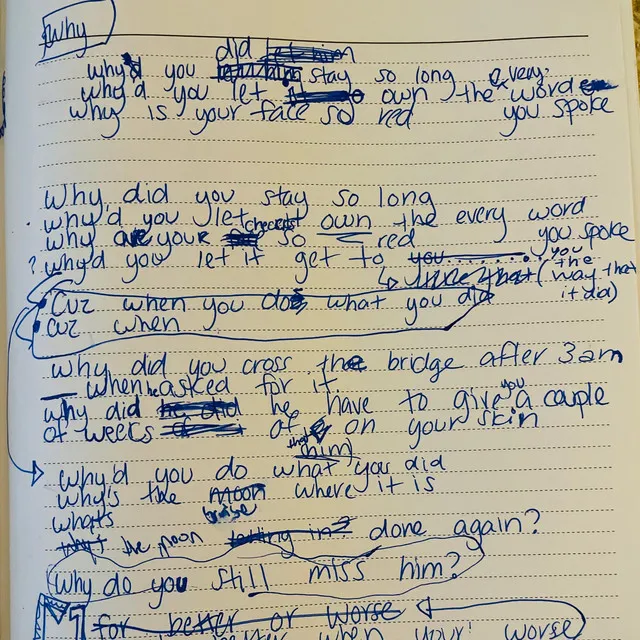 Why
did
why'd you stay so long every
why'd you let own the word
why is your face so red you spoke
Why did you stay so long
why'd you let own the every word
why are your cheeks so red you spoke
? why'd you let it get to you
(the way that it did)
Cuz when you do what you did
cuz when
why did you cross the bridge after 3am
when he asked for it
why did he have to give you a couple
of weeks of on your skin
him
why'd you do what you did
why's the moon where it is
what's bruise
the moon done again?
Why do you still miss him?
M1 for better or worse
when your worse